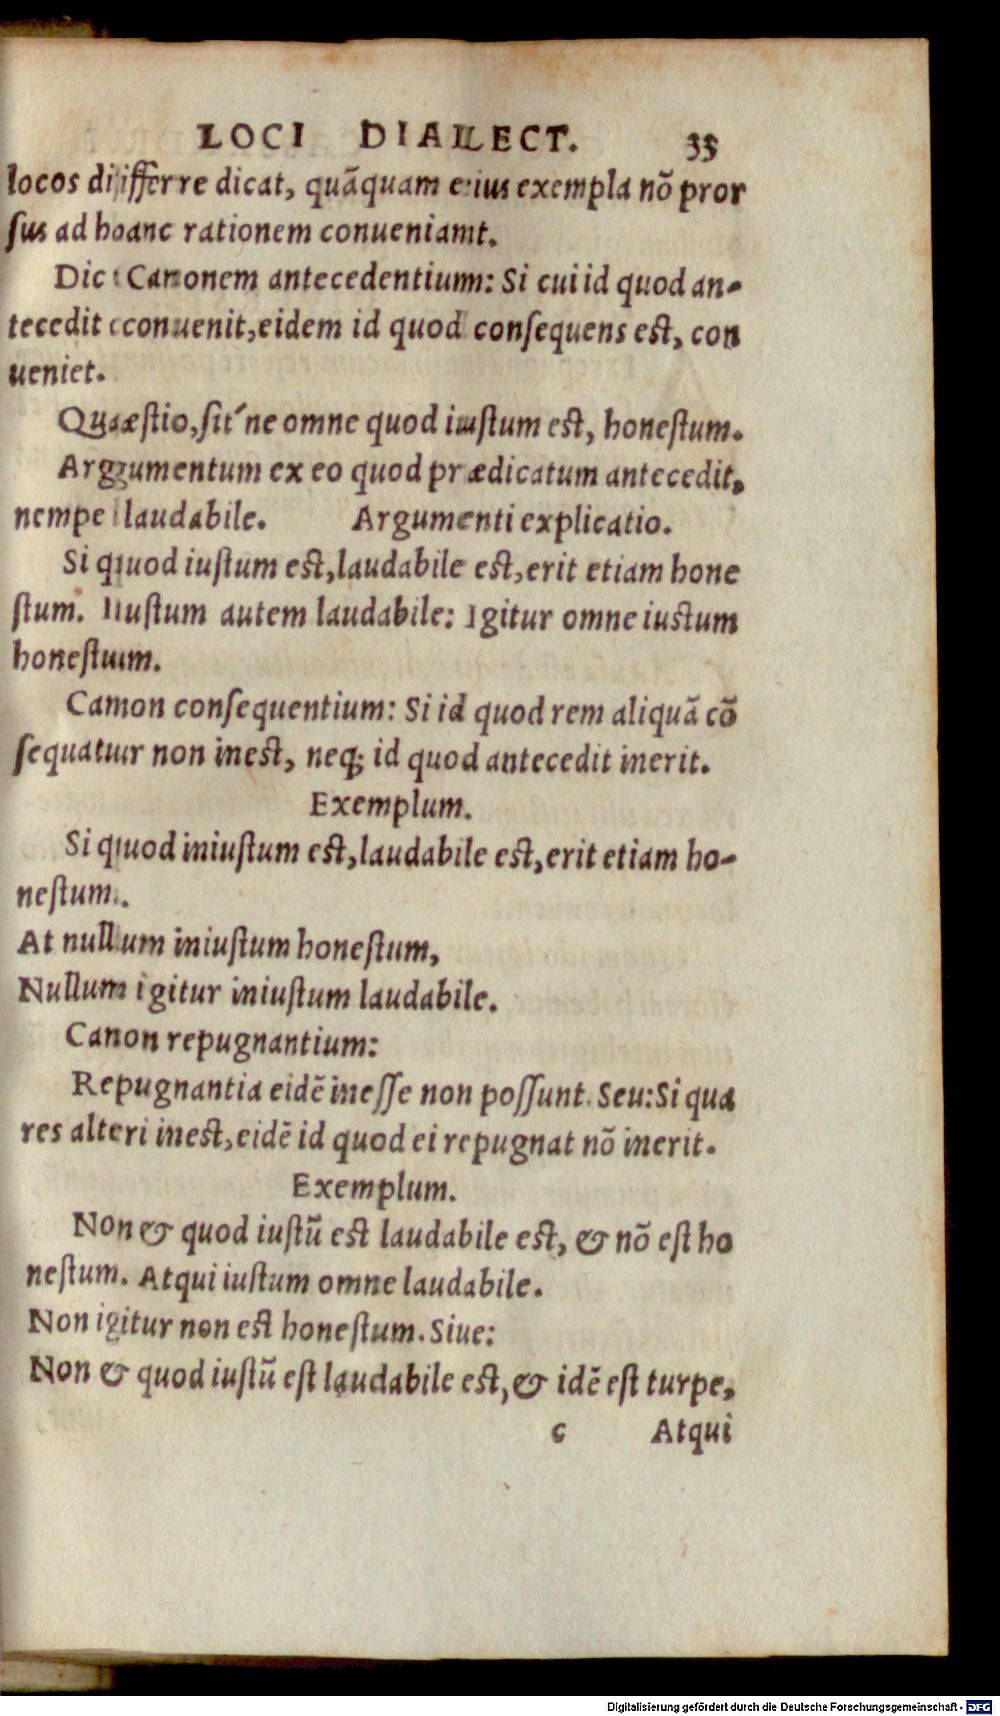 LOCI DIALECT. 33
locos differre dicat, quãquam eius exempla nõ pror
sus ad hanc rationem conueniant.
Dic Canonem antecedentium: Si cui id quod an-
tecedit conuenit, eidem id quod consequens est, con
ueniet.
Quæstio, sit´ne omne quod iustum est, honestum.
Argumentum ex eo quod prædicatum antecedit,
nempe laudabile. Argumenti explicatio.
Si quod iustum est, laudabile est, erit etiam hone
stum. Iustum autem laudabile: Igitur omne iustum
honestum.
Canon consequentium: Si id quod rem aliquã cõ
sequatur non inest, neq; id quod antecedit inerit.
Exemplum.
Si quod iniustum est, laudabile est, erit etiam ho-
nestum.
At nullum iniustum honestum,
Nullum igitur iniustum laudabile.
Canon repugnantium:
Repugnantia eidẽ inesse non possunt. Seu: Si qua
res alteri inest, eidẽ id quod ei repugnat nõ inerit.
Exemplum.
Non & quod iustũ est laudabile est, & nõ est ho
nestum. Atqui iustum omne laudabile.
Non igitur non est honestum. Siue:
Non & quod iustũ est laudabile est, & idẽ est turpe,
c Atqui
Digitalisierung gefördert durch die Deutsche Forschungsgemeinschaft - DFG